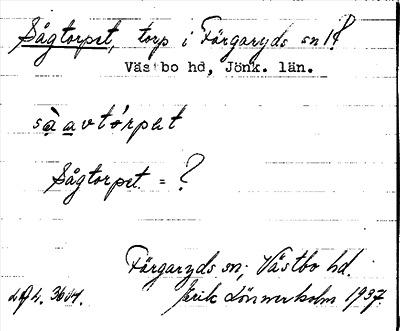 Sågtorpet, torp i Färgaryds sn
Västbo hd, Jönk. län.
sàavtórpet
Sågtorpet = ?
Färgaryds sn; Västbo hd.
Erik Lönnerholm 1937.